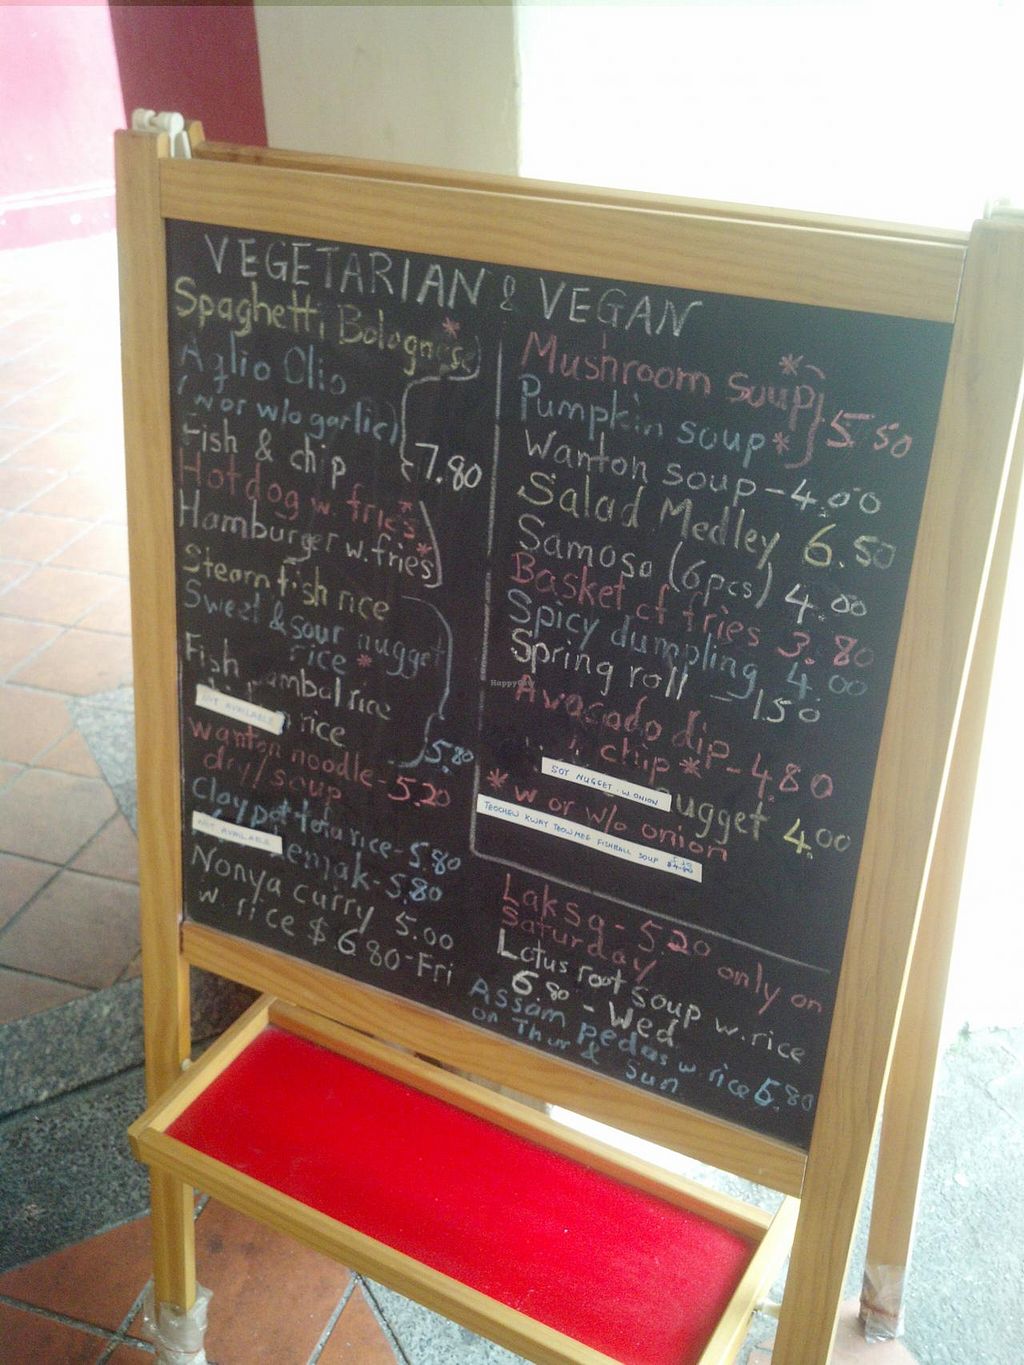 VEGETARIAN & VEGAN
Spaghetti Bolognese *
Aglio Olio
(w or w/o garlic)
Fish & chip
7.80
Hotdog w. fries *
Hamburger w. fries *
Steam fish rice
Sweet & sour nugget
rice *
Fish sambal rice
NOT AVAILABLE
rice
5.80
wanton noodle - 5.20
dry/soup
Claypot tofu rice - 5.80
NOT AVAILABLE
lemak - 5.80
Nonya curry 5.00
w. rice $ 6.80 - Fri
Mushroom soup *
Pumpkin soup *
5.50
Wanton soup - 4.00
Salad Medley 6.50
Samosa (6pcs) 4.00
Basket of fries 3.80
Spicy dumpling 4.00
Spring roll - 1.50
Avocado dip
chip * - 4.80
SOY NUGGET . W ONION
nugget 4.00
* w or w/o onion
TEOCHEW KWAY TEOW MEE FISHBALL SOUP
Laksa - 5.20 only on
Saturday
Lotus root soup w. rice
6.80 - Wed
Assam pedas w rice 6.80
on Thur & Sun
HappyCow